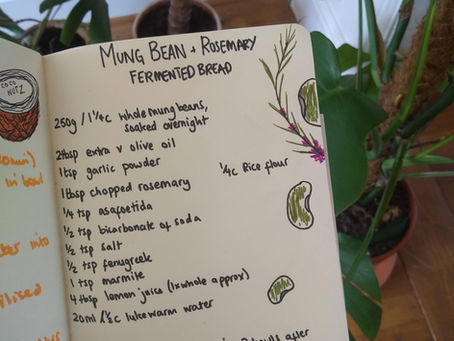 MUNG BEAN + ROSEMARY
FERMENTED BREAD
COCO
NUTZ
250g / 1 1/4c whole mung beans,
soaked overnight
2tbsp extra v olive oil
1tsp garlic powder
1tbsp chopped rosemary
1/4c Rice flour
1/4 tsp asafoetida
1/2 tsp bicarbonate of soda
1/2 tsp salt
1/2 tsp fenugreek
1 tsp marmite
4 tbsp lemon juice (1x whole approx)
20ml / 1/2c lukewarm water
after
in bowl
into